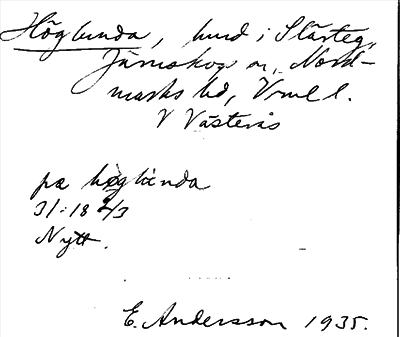 Höglunda, hmd i Slärteg,
Järnskogs sn, Nord-
marks hd, Vrml l.
V Västerås
pa høglúnda
31:18 2/3
Nytt.
E. Andersson 1935.